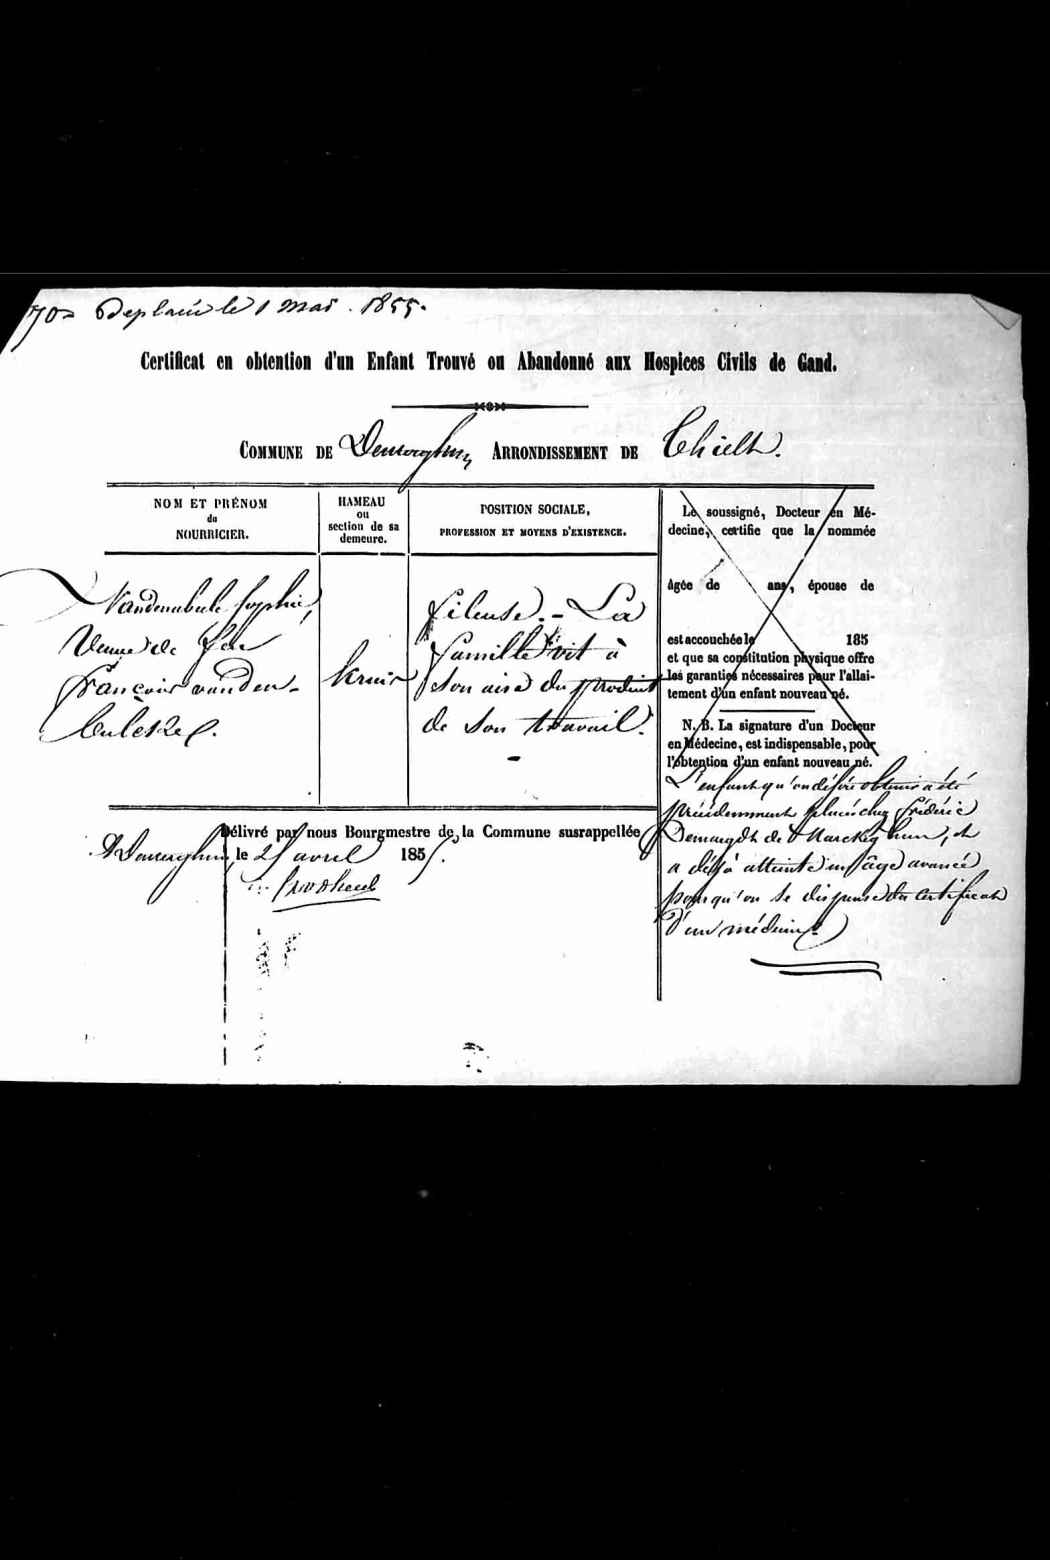 Deplacé le 1 mai . 1855.
Certificat en obtention d'un Enfant Trouvé ou Abandonné aux Hospices Civils de Gand.
COMMUNE DE Denterghem ARRONDISSEMENT DE Thielt.
NOM ET PRÉNOM
du
NOURRICIER.
HAMEAU
ou
section de sa
demeure.
POSITION SOCIALE,
PROFESSION ET MOYENS D'EXISTENCE.
Le soussigné, Docteur en Mé-
decine, certifie que la nommée
âgée de ans, épouse de
est accouchée le 185
et que sa constitution physique offre
les garanties nécessaires pour l'allai-
tement d'un enfant nouveau né.
N. B. La signature d'un Docteur
en Médecine, est indispensable, pour
l'obtention d'un enfant nouveau né.
Sophie,
Veuve de feu
françois vanden-
Kruis
fileuse. - La
famille vit à
son aise du produit
de son travail.
L'enfant qu'on désire obtenir a été
précédemment placé chez Fréderic
de Marckeghem, et
a déjà atteint un âge avancé
pour qu'on se dispense du certificat
d'un médecin.
Délivré par nous Bourgmestre de la Commune susrappellée
A Denterghem, le 25 avril 1855.